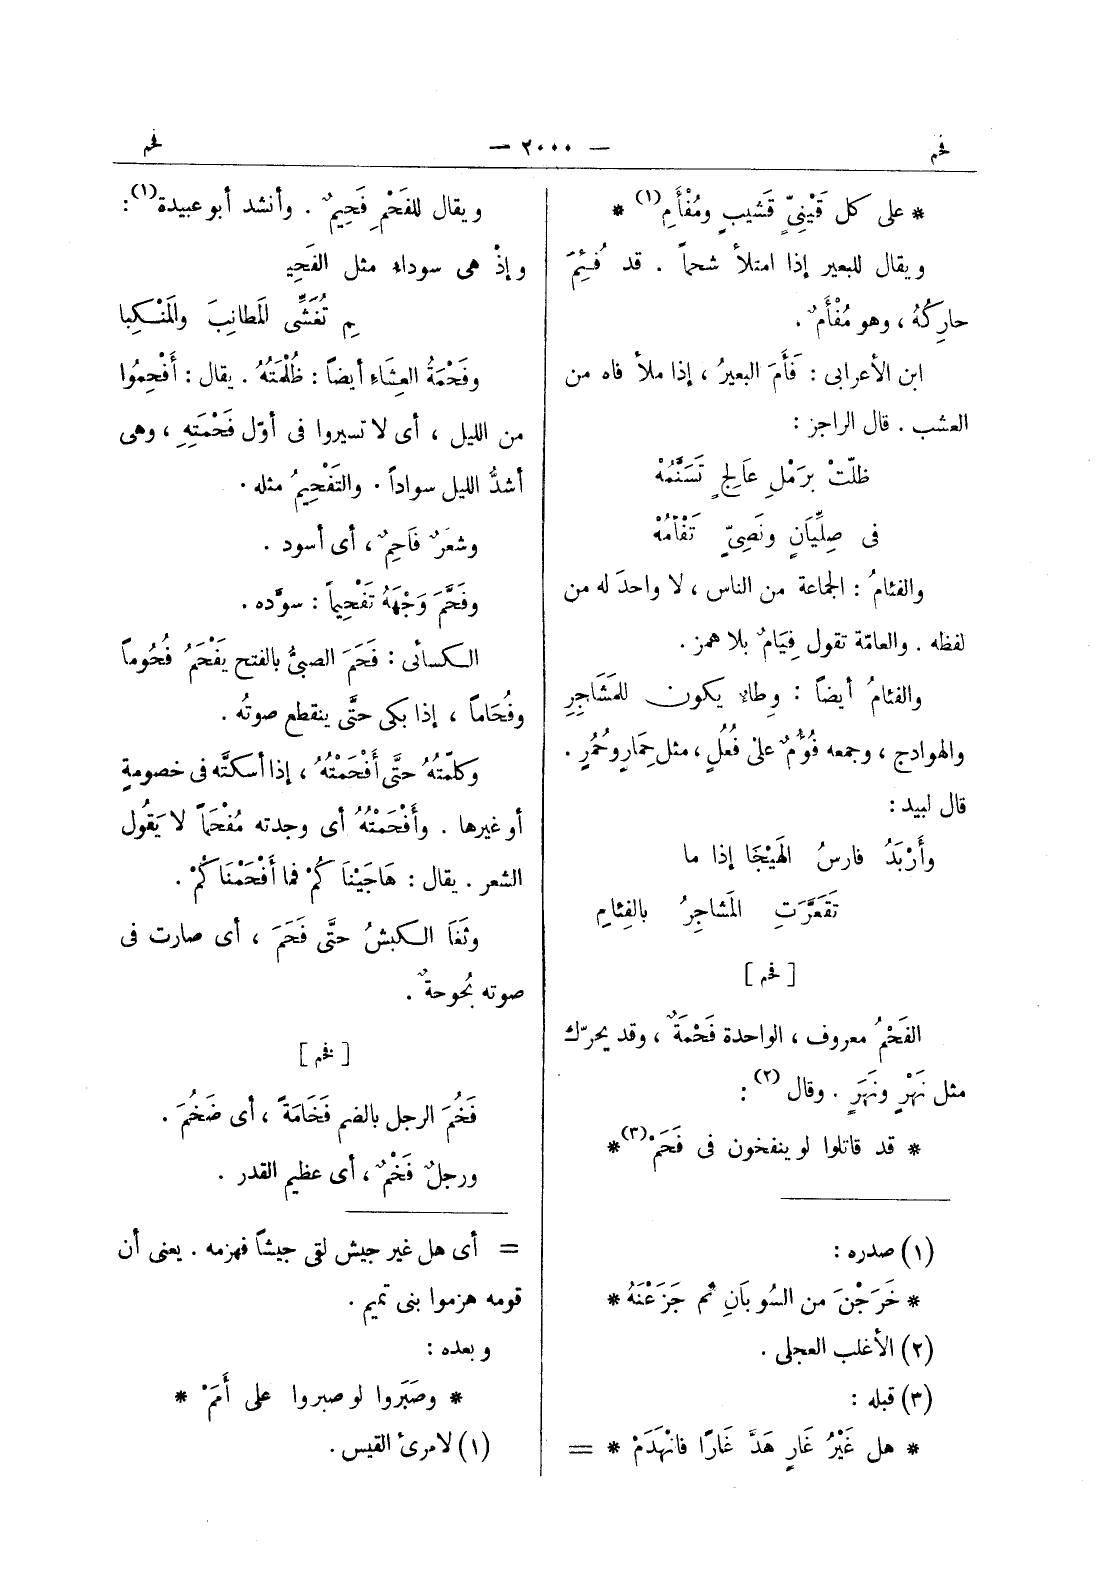 فحم
— ٢٠٠٠ —
فخم
* على كل قَيْنِىٍّ قَشيبٍ ومُفْأَمِ(١) *
ويقال للبعير إذا امتلأ شحماً . قد فُئِمَ
حارِكُهُ ، وهو مُفْأَمٌ .
ابن الأعرابى : فَأَمَ البعيرُ ، إذا ملأ فاه من
العشب . قال الراجز :
ظلّتْ برَمْلِ عَالِجٍ تَسَنَّمُهْ
فى صِلِّيَانٍ ونَصِىٍّ تَفْأَمُهْ
والفئامُ : الجماعة من الناس ، لا واحدَ له من
لفظه . والعامّة تقول فِيَامٌ بلا همز .
والفئامُ أيضاً : وِطاء يكون للمَشَاجِرِ
والهوادج ، وجمعه فُؤُمٌ على فُعُلٍ ، مثل حِمَارٍ وحُمُرٍ .
قال لبيد :
وأَرْبَدُ فارسُ الهَيْجَا إذا ما
تَقَعَّرَتِ المَشاجِرُ بالفِئامِ
[ فحم ]
الفَحْمُ معروف ، الواحدة فَحْمَةٌ ، وقد يحرّك
مثل نَهْرٍ ونَهَرٍ . وقال (٢) :
* قد قاتلوا لو ينفخون فى فَحَمْ(٣) *
(١) صدره :
* خَرَجْنَ من السُوبَانِ ثم جَزَعْنَهُ *
(٢) الأغلب العجلى .
(٣) قبله :
* هل غَيْرُ غَارٍ هَدَّ غَارًا فانْهَدَمْ * =
ويقال للفَحْمِ فَحِيمٌ . وأنشد أبو عبيدة(١) :
وإذْ هى سوداء مثل الفَحِيـ
ـمِ تُغَشِّى المَطانِبَ والمَنْكِبا
وفَحْمَةُ العِشَاءِ أيضاً : ظُلْمَتُهُ . يقال : أَفْحِمُوا
من الليل ، أى لا تسيروا فى أوّل فَحْمَتِهِ ، وهى
أشدُّ الليل سواداً . والتَفْحِيمُ مثله .
وشعَرٌ فَاحِمٌ ، أى أسود .
وفَحَّمَ وَجْهَهُ تَفْحِيماً : سوَّده .
الكسائى : فَحَمَ الصبىُّ بالفتح يَفْحَمُ فُحُوماً
وفُحَاماً ، إذا بكى حتَّى ينقطع صوتُه .
وكلّمتُهُ حتَّى أَفْحَمْتُهُ ، إذا أسكتَّه فى خصومةٍ
أو غيرها . وأَفْحَمْتُهُ أى وجدته مُفْحَماً لا يَقُول
الشعر . يقال : هَاجَيْنَا كُمْ فما أَفْحَمْنَا كُمْ .
وثَغَا الكبشُ حتَّى فَحَمَ ، أى صارت فى
صوته بُحوحةٌ .
[ فخم ]
فَخُمَ الرجل بالضم فَخَامَةً ، أى ضَخُمَ .
ورجلٌ فَخْمٌ ، أى عظيم القدر .
= أى هل غير جيش لقى جيشاً فهزمه . يعنى أن
قومه هزموا بنى تميم .
وبعده :
* وصَبَروا لو صبروا على أَمَمْ *
(١) لامرئ القيس .